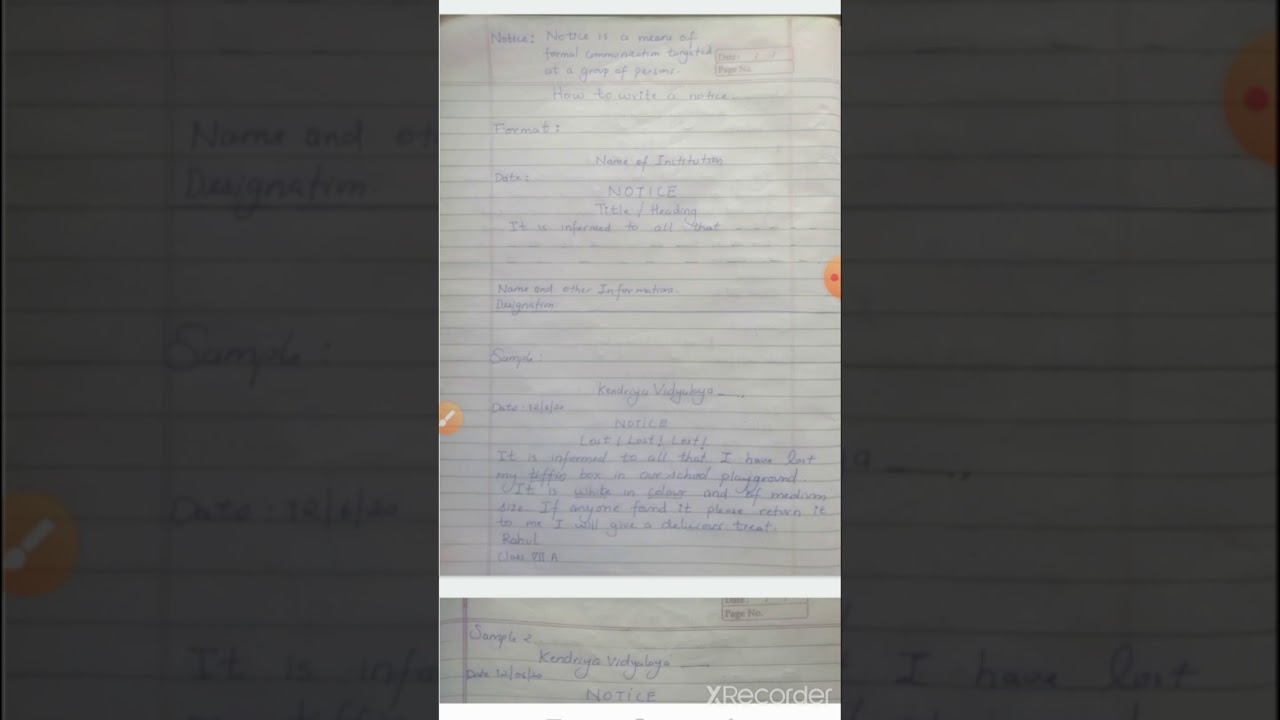 Notice: Notice is a means of
formal communication targeted
at a group of persons.
Date: / /
Page No.
How to write a notice.
Format:
Name of Institution
Date:
NOTICE
Title / Heading
It is informed to all that
Name and other Information.
Designation.
Sample:
Kendriya Vidyalaya
Date: 12/6/20
NOTICE
Lost! Lost! Lost!
It is informed to all that I have lost
my tiffin box in our school playground.
It is white in colour and of medium
size. If anyone found it please return it
to me I will give a delicious treat.
Rahul
Class VII A
Date: / /
Page No.
Sample 2
Kendriya Vidyalaya
Date 12/06/20
NOTICE
XRecorder
Name and
Designation.
Sample:
Date: 12/6/20
It is
I have lost